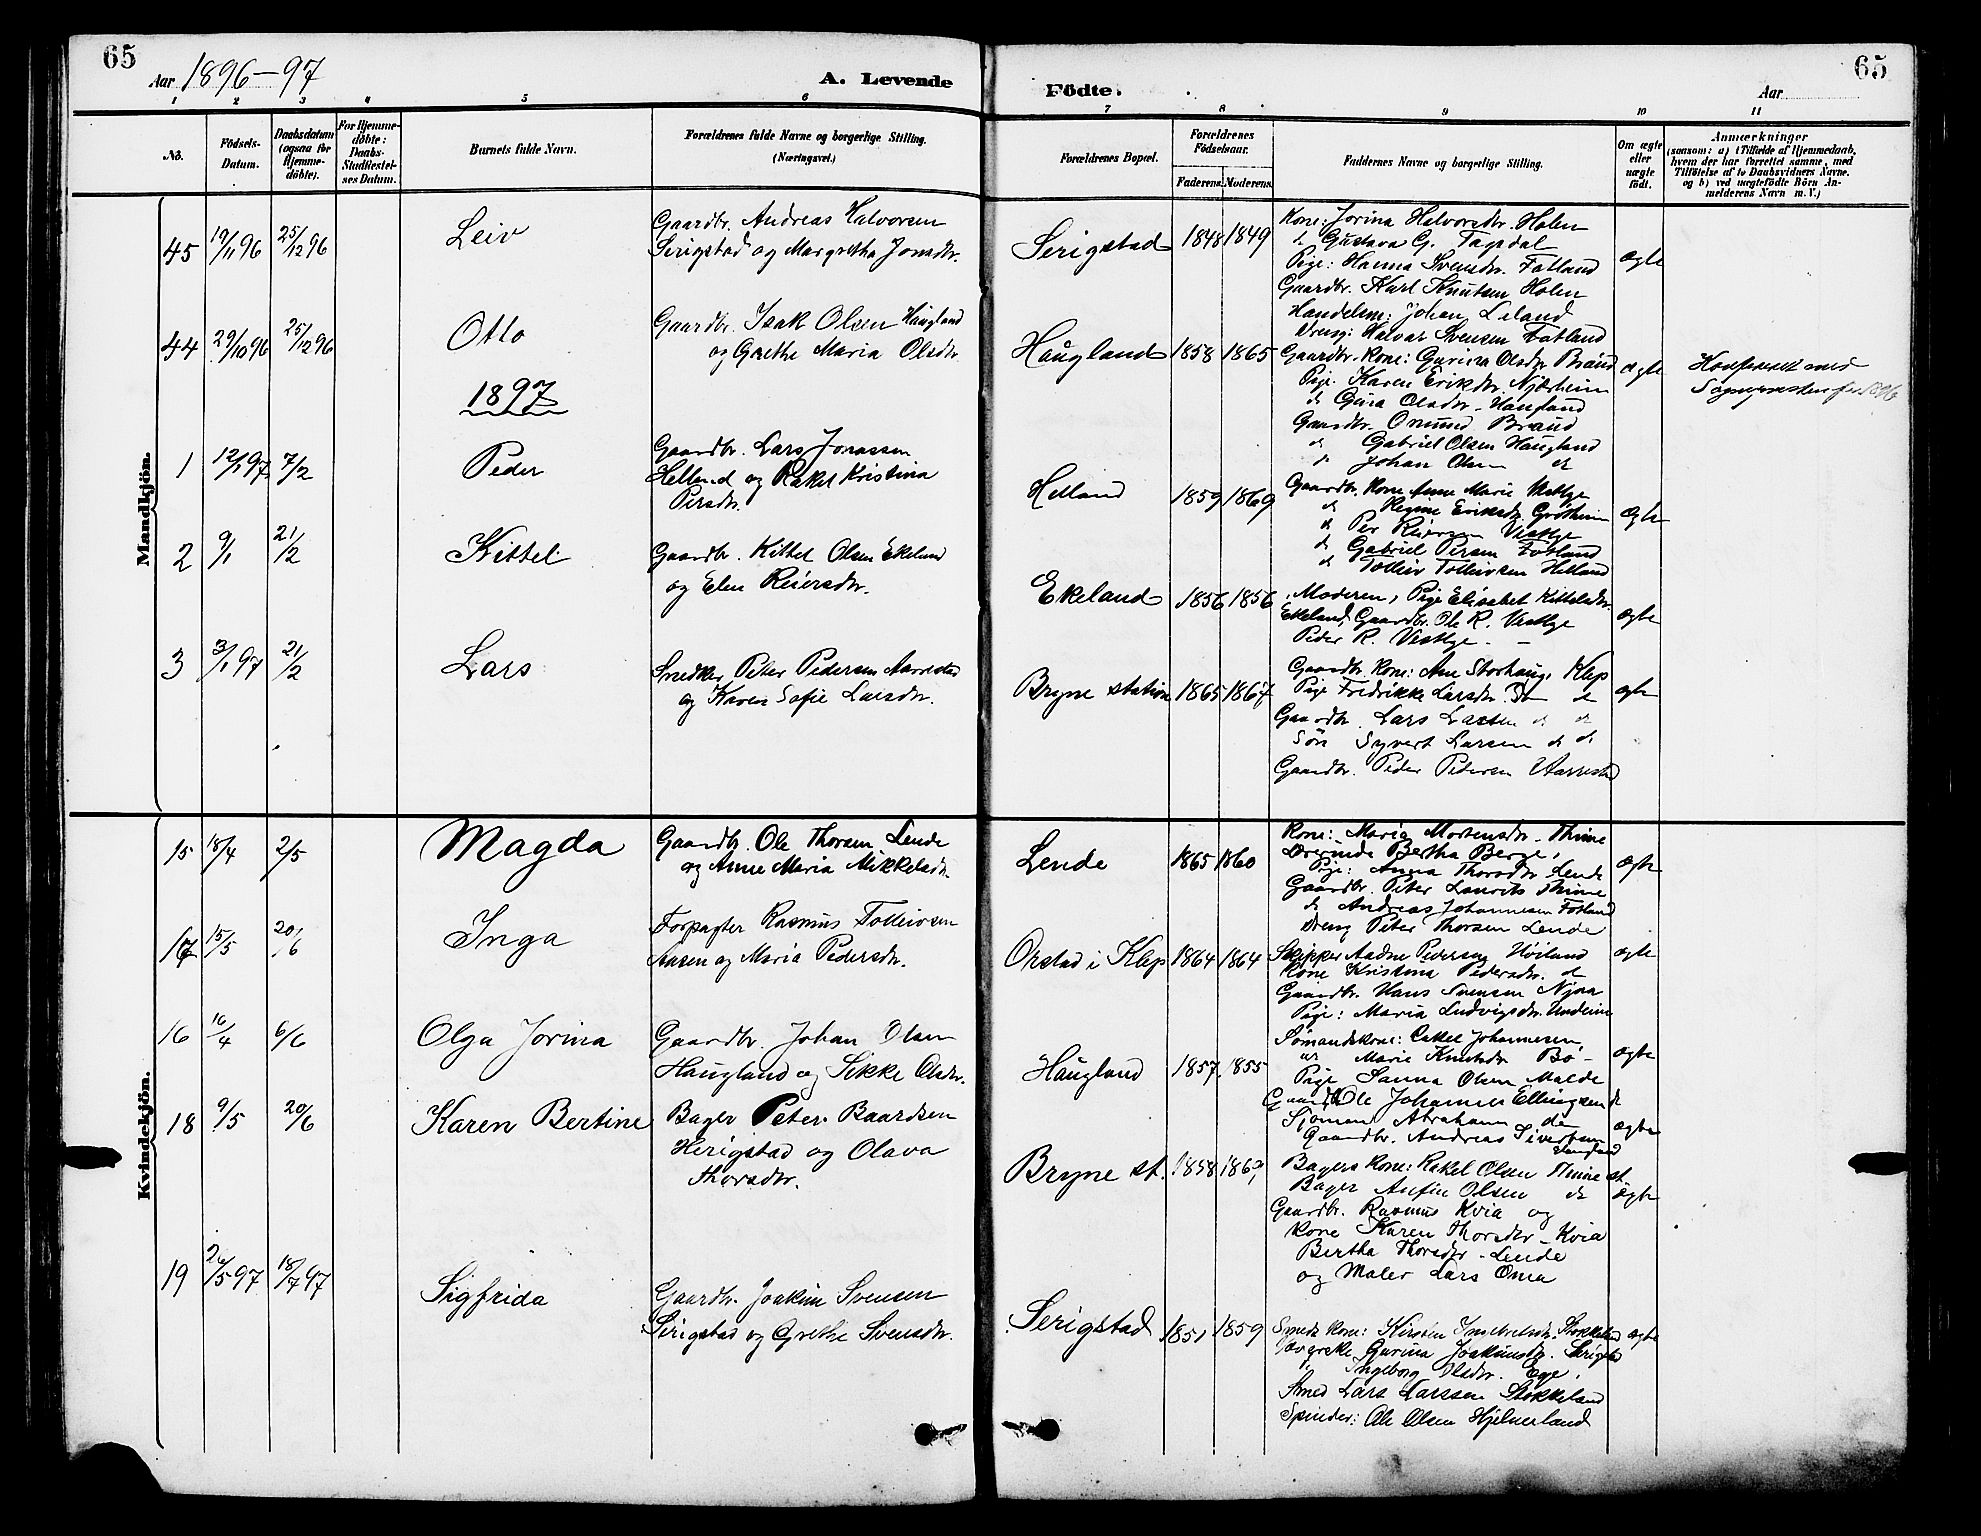 65
Aar 1896-97
A. Levende
Födte.
Aar
65
1 2 3 4 5 6 7 8 9 10 11
No.
Födsels-Datum.
Daabsdatum (ogsaa for Hjemmedöbte).
For Hjemmedöbte: Daabs-Stadfestelses Datum.
Barnets fulde Navn.
Forældrenes fulde Navne og borgerlige Stilling.
(Næringsvei.)
Forældrenes Bopæl.
Forældrenes Födselsaar.
Faderens. Moderens.
Faddernes Navne og borgerlige Stilling.
Om ægte eller uægte födt.
Anmærkninger
(saasom: a) i Tilfælde af Hjemmedaab, hvem der har forrettet samme, med Tilföielse af to Daabsvidners Navne. og b) ved uægtefödte Börn Anmelderens Navn m. V.)
Mandkjön.
45 19/11 96 25/12 96 Leiv
Gaardbr. Andreas Halvorsen
Serigstad og Margretha Jonsdtr.
Serigstad 1848 1849
Kone: Jorina Halvorsdtr. Holen
do Gustava G. Tagsdal
Pige: Hanna Svensdtr. Fotland
Gaardbr. Karl Knutsen Holen
Handelsm: Johan Leland
Dreng: Halvar Svensen Fotland
ægte
44 29/10 96 25/12 96 Otto
Gaardbr. Isak Olsen Haugland
og Grethe Maria Olsdtr.
Haugland 1858 1865
Gaardbr. Kone: Gurina Olsdtr Braud
Pige. Karen Eriksdtr Njærheim
do Gina Olsdtr. Haugland
Gaardbr. Onund Braud
do Gabriel Olsen Haugland
do Johan Olsen do
ægte
1897
1 12/1 97 7/2 Peder
Gaardbr. Lars Jonassen
Helland og Rakel Kristina
Persdtr.
Helland 1859 1869
Gaardbr. Kone Anne Marie Vestlye
do Eriksdtr Grødheim
do Per Reiersen Vestlye
do Gabriel Persen Fotland
do Tolleiv Tolleivsen Helland
ægte
2 9/1 21/2 Kittel
Gaardbr. Kittel Olsen Ekeland
og Elen Reiersdtr.
Ekeland 1856 1856
Moderen, Pige Elisabet Kittelsdtr.
Ekeland, Gaardbr. Ole R. Vestlye
Peder R. Vestlye
ægte
3 3/1 97 21/2 Lars
Snedker Peter Pedersen Aarrestad
og Karen Sofie Larsdtr.
Bryne station 1865 1867
Gaardbr. Kone: Ane Storhaug, Klep
Pige Fredrikke Larsdtr. do do
Gaardbr. Lars Larsen do do
Søn Syvert Larsen do do
Gaardbr. Peder Pedersen Aarrestad
ægte
Kvindekjön.
15 18/4 2/5 Magda
Gaardbr. Ole Thorsen Lende
og Anne Maria Mikkelsdtr.
Lende 1865 1860
Kone: Maria Mortensdtr. Thime
Lærerinde Bertha Berge,
Pige: Anna Thorsdtr Lende
Gaardbr. Peter Laurits Thime
do Andreas Johannesen Fotland
Dreng Peter Thorsen Lende
ægte
17 15/5 20/6 Inga
Forpagter Rasmus Tolleivsen
Aasen og Maria Pedersdtr.
Orstad i Klep 1864 1864
Skipper Aadne Pedersen Høiland
Kone Kristina Pedersdtr. do
Gaardbr. Hans Svensen Njaa
Pige: Maria Ludvigsdtr. Undeim
ægte
16 16/4 6/6 Olga Jorina
Gaardbr. Johan Olsen
Haugland og Sikke Olsdtr.
Haugland 1857 1855
Sømandskone: Johannesen
do Marie Knutsdtr Bø
Pige Sanna Olsen Malde
Gaardbr Ole Johannes Ellingsen do
Sjømand Abraham do
Gaardbr. Andreas Sivertsen
ægte
18 9/5 20/6 Karen Bertine
Bager Peter Baardsen
Herigstad og Olava
Thorsdtr.
Bryne st. 1858
Bagers Kone: Rakel Olsen Thime st.
Bager Anfin Olsen do
Gaardbr. Rasmus Kvia og
Kone Karen Thorsdtr. Kvia
Bertha Thorsdtr. Lende
og Maler Lars Oma
ægte
19 26/5 97 18/7 97 Sigfrida
Gaardbr. Joakim Svensen
Serigstad og Grethe Svensdtr.
Serigstad 1851 1859
Smeds Kone: Kirsten Stokkeland
Gurina Joakimsdtr. Serigstad
Ingeborg Olsdtr. Ege,
Smed Lars Larssen Stokkeland
Spinder: Ole Olsen Hjelmeland
ægte